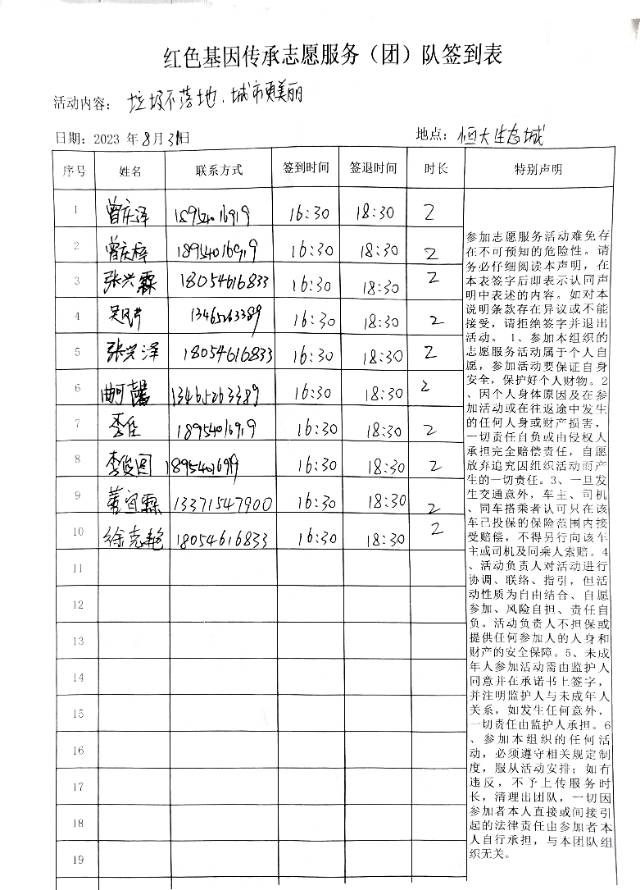 红色基因传承志愿服务（团）队签到表
活动内容： 垃圾不落地．城市更美丽
日期：2023 年 8 月 31 日
地点：恒大生态城
序号 姓名 联系方式 签到时间 签退时间 时长 特别声明
1 曾庆泽 18954016919 16:30 18:30 2
2 曾庆梓 18954016919 16:30 18:30 2
3 张兴霖 18054616833 16:30 18:30 2
4 13465263389 16:30 18:30 2
5 张兴泽 18054616833 16:30 18:30 2
6 13465263389 16:30 18:30 2
7 李佳 18954016919 16:30 18:30 2
8 李俊图 18954016919 16:30 18:30 2
9 董宜霖 13371547900 16:30 18:30 2
10 徐克艳 18054616833 16:30 18:30 2
11
12
13
14
15
16
17
18
19
参加志愿服务活动难免存
在不可预知的危险性。请
务必仔细阅读本声明，在
本表签字后即表示认同声
明中表述的内容。如对本
说明条款存在异议或不能
接受，请拒绝签字并退出
活动、 1、参加本组织的
志愿服务活动属于个人自
愿，参加活动要保证自身
安全，保护好个人财物。2
、因个人身体原因及在参
加活动或在往返途中发生
的任何人身或财产损害，
一切责任自负或由侵权人
承担完全赔偿责任，自愿
放弃追究因组织活动而产
生的一切责任。3、一旦发
生交通意外，车主、司机
、同车搭乘者认可只在该
车已投保的保险范围内接
受赔偿，不得另行向该车
主或司机及同乘人索赔。4
、活动负责人对活动进行
协调、联络、指引，但活
动性质为自由结合、自愿
参加、风险自担、责任自
负。活动负责人不担保或
提供任何参加人的人身和
财产的安全保障。5、未成
年人参加活动需由监护人
同意并在承诺书上签字，
并注明监护人与未成年人
关系，如发生任何意外，
一切责任由监护人承担。6
、参加本组织的任何活
动，必须遵守相关规定制
度，服从活动安排；如有
违反，不予上传服务时
长，清理出团队，一切因
参加者本人直接或间接引
起的法律责任由参加者本
人自行承担，与本团队组
织无关。